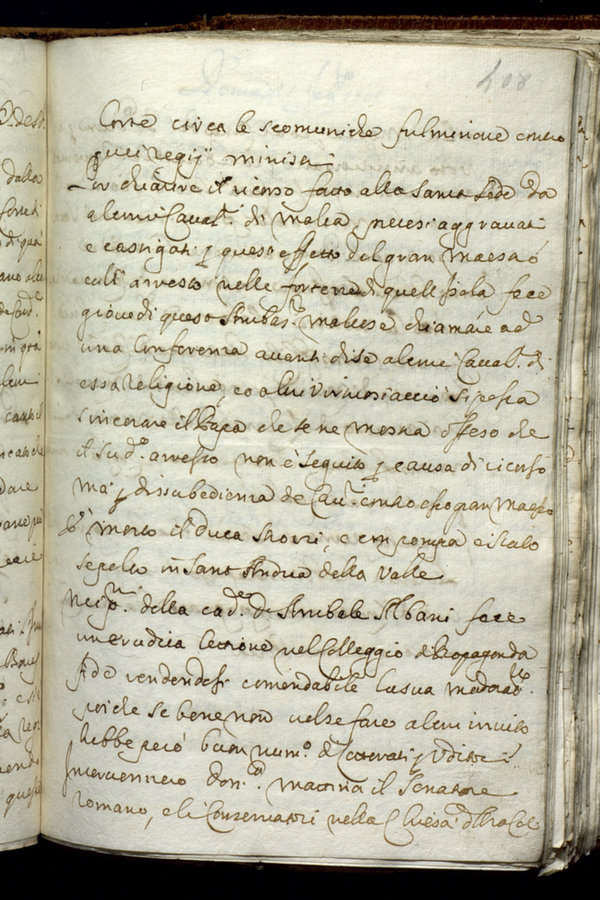 408
Corte circa le scomuniche fulminate contro
quei regij ministri
Per chiarire il ricorso fatto alla Santa Sede da
alcuni Cavalri di Malta, pretesi aggravati
e castigati p questo effetto del gran Maestro
coll' arresto nelle fortezze di quell' Isola fece
giovedi questo Ambasr Maltese chiamare ad
una Conferenza avanti di se alcuni Cavalri di
essa religione, et altri acciò si possa
sincerare il Papa che se ne mostra offeso che
il sudo arresto non è seguito p causa di ricorso
ma p dissubedienza de Cavri contro esso gran Maestro
È morto il Duca Sforzi, e con pompa è stato
sepolto in Sant Andrea della Valle
della cade Annibale Albani fece
un erudita lettione nel Colleggio de Propaganda
fide rendendosi comendabile la sua
poiche se bene non volse fare alcun invito
hebbe però buon numo di Letterati p Uditori
Intervennero domca mattina il Senatore
romano, e li Conservatori nella Chiesa d'Ara Cel